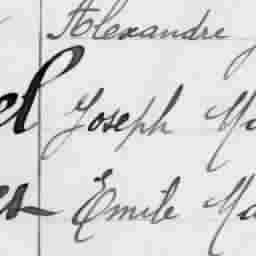 Alexandre
el Joseph Ma
es Emile Ma